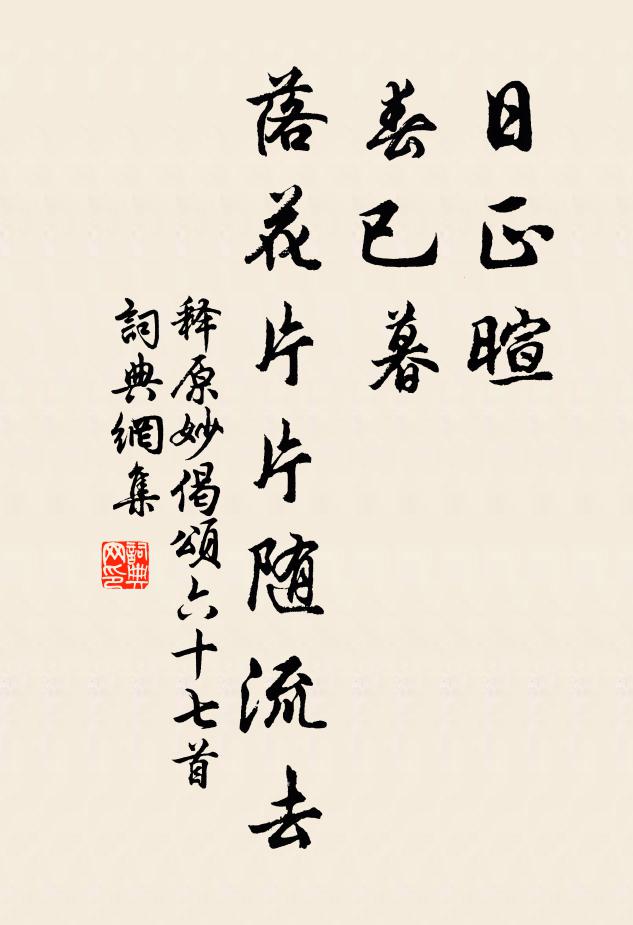 日正暄
春已暮
落花片片随流去
释原妙偈颂六十七首
詞典網集
詞典网印